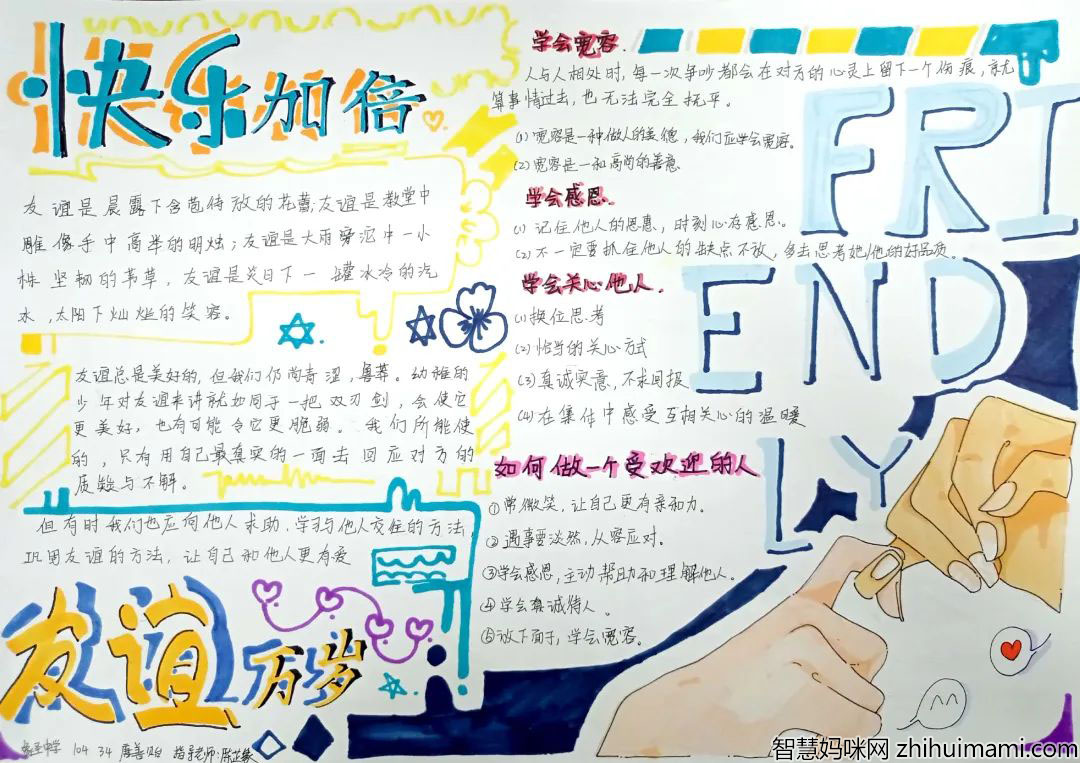 快乐加倍
友谊是晨露下含苞待放的花蕾;友谊是教堂中
雕像手中高举的明烛;友谊是大雨滂沱中一小
株坚韧的苇草,友谊是炎日下一罐冰冷的汽
水,太阳下灿烂的笑容。
友谊总是美好的,但我们仍尚青涩,鲁莽。幼稚的
少年对友谊来讲就如同于一把双刃剑,会使它
更美好,也有可能令它更脆弱。我们所能使
的,只有用自己最真实的一面去回应对方的
质疑与不解。
但有时我们也应向他人求助,学习与他人交往的方法,
巩固友谊的方法,让自己和他人更有爱
友谊万岁
104 34 指导老师:陈芷
学会宽容.
人与人相处时,每一次争吵都会在对方的心灵上留下一个伤痕,就
算事情过去,也无法完全抚平。
(1)宽容是一种做人的美德,我们应学会宽容。
(2)宽容是一种高尚的善意
学会感恩.
(1)记住他人的恩惠,时刻心存感恩。
(2)不一定要抓住他人的缺点不放,多去思考她/他的好品质。
学会关心他人.
(1)换位思考
(2)恰当的关心方式
(3)真诚实意,不求回报
(4)在集体中感受互相关心的温暖
如何做一个受欢迎的人
①常微笑,让自己更有亲和力。
②遇事要淡然,从容应对。
③学会感恩,主动帮助和理解他人。
④学会真诚待人。
⑤放下面子,学会宽容。
FRI
END
LY
智慧妈咪网 zhihuimami.com